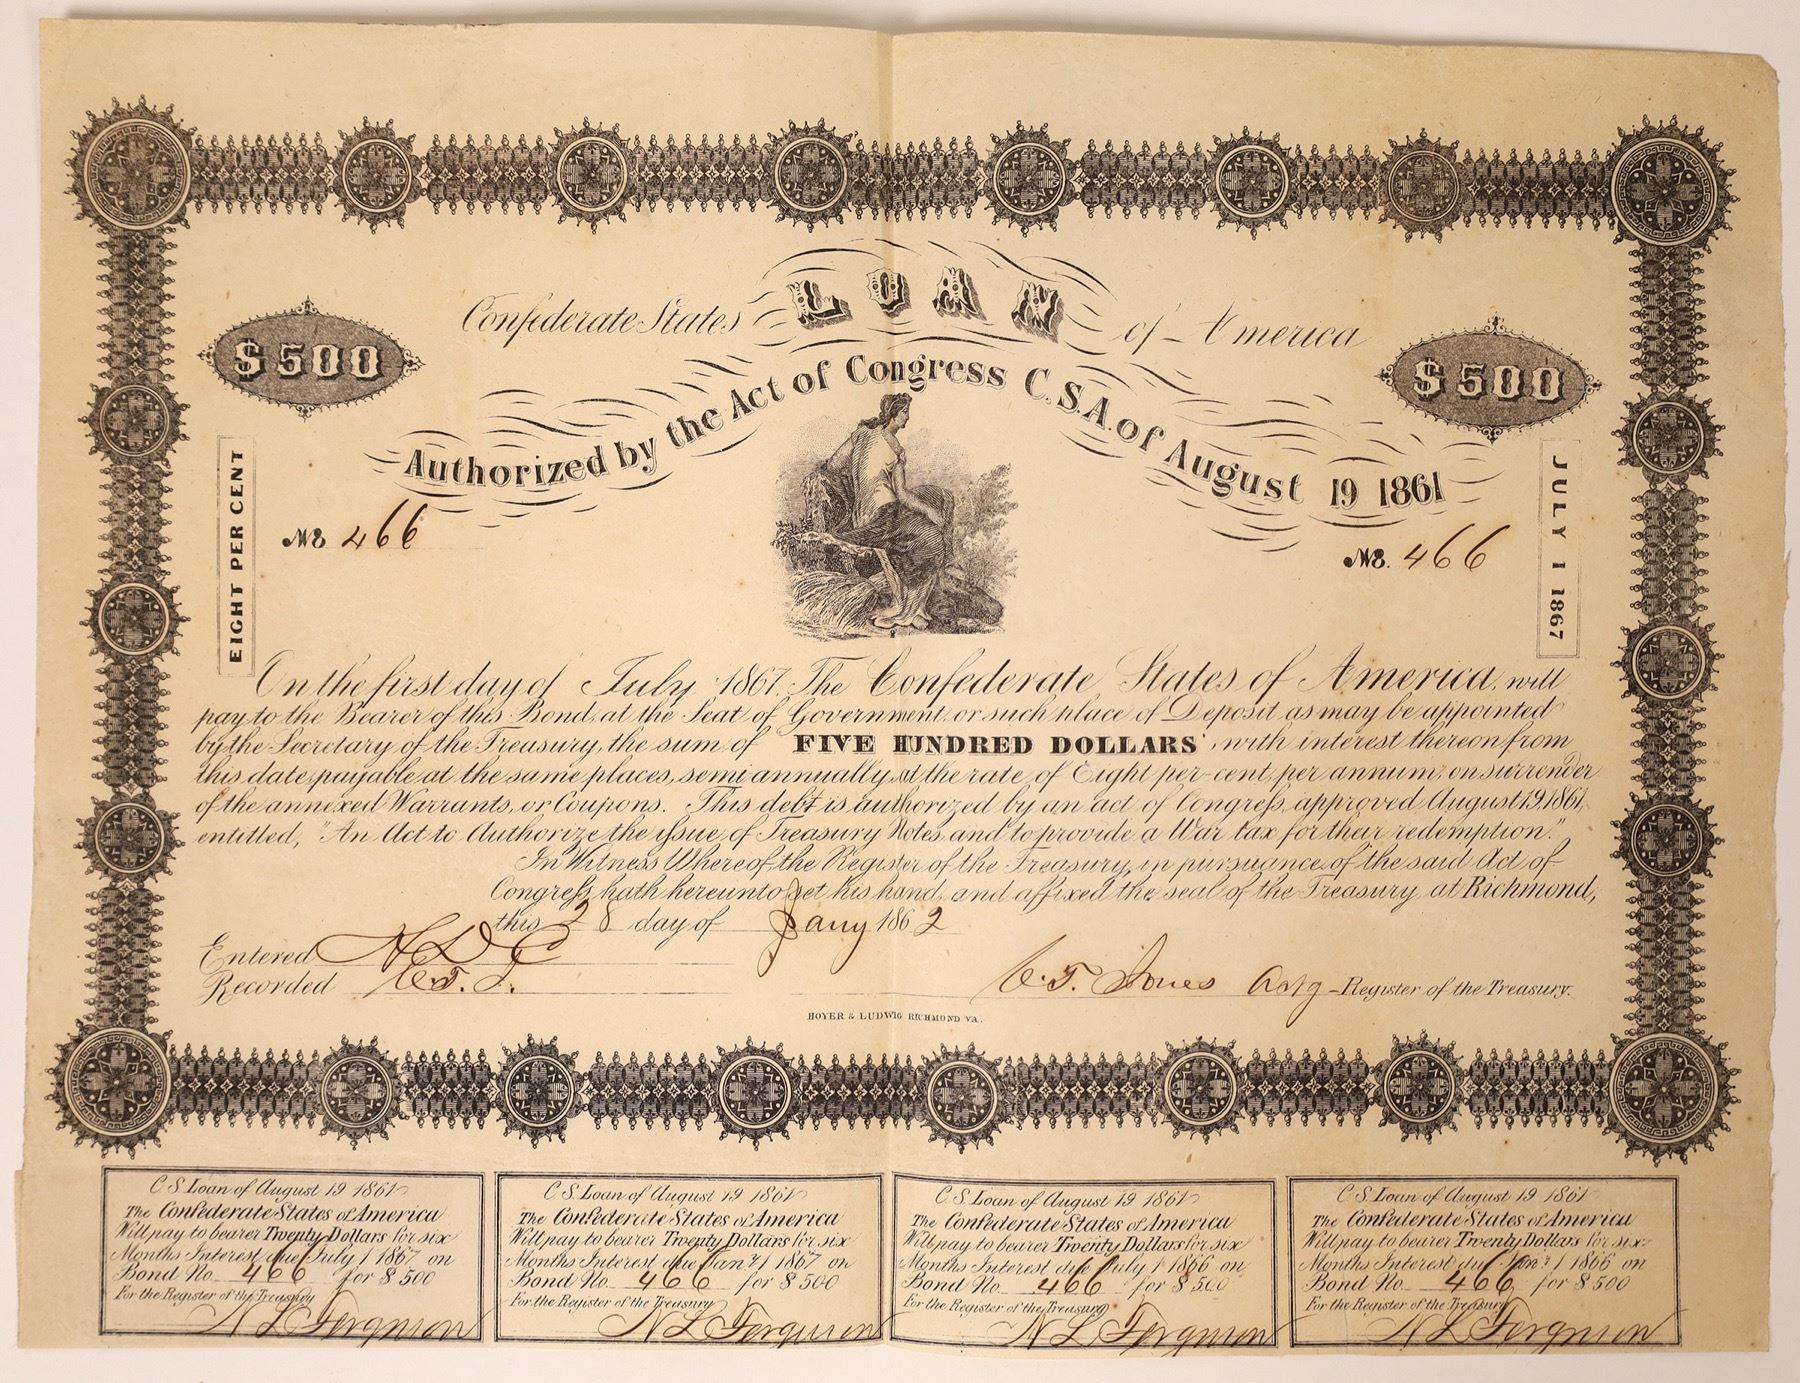 Confederate States LOAN of America
$500
$500
Authorized by the Act of Congress C.S.A. of August 19 1861
EIGHT PER CENT
JULY 1 1867
No 466
No. 466
On the first day of July 1867 The Confederate States of America, will
pay to the Bearer of this Bond, at the Seat of Government, or such place of Deposit as may be appointed
by the Secretary of the Treasury, the sum of FIVE HUNDRED DOLLARS, with interest thereon from
this date, payable at the same places, semi annually, at the rate of Eight per-cent, per annum, on surrender
of the annexed Warrants, or Coupons. This debt is authorized by an act of Congress, approved August 19, 1861,
entitled, "An Act to Authorize the issue, of Treasury Notes, and to provide a War tax for their redemption."
In Witness Whereof, the Register of the Treasury, in pursuance of the said Act of
Congress, hath hereunto set his hand, and affixed the seal of the Treasury, at Richmond,
this 28 day of Jany 1862
Entered H D C
Recorded C. T. J.
C. T. Jones Actg Register of the Treasury.
HOYER & LUDWIG RICHMOND VA.
C S. Loan of August 19 1861
The Confederate States of America
Will pay to bearer Twenty Dollars for six
Months Interest due July 1 1867 on
Bond No. 466 for $500
For the Register of the Treasury
N L Ferguson
C S. Loan of August 19 1861
The Confederate States of America
Will pay to bearer Twenty Dollars for six
Months Interest due Jany 1 1867 on
Bond No. 466 for $500
For the Register of the Treasury
N L Ferguson
C S. Loan of August 19 1861
The Confederate States of America
Will pay to bearer Twenty Dollars for six
Months Interest due July 1 1866 on
Bond No. 466 for $500
For the Register of the Treasury
N L Ferguson
C S. Loan of August 19 1861
The Confederate States of America
Will pay to bearer Twenty Dollars for six
Months Interest due Jany 1 1866 on
Bond No. 466 for $500
For the Register of the Treasury
N L Ferguson